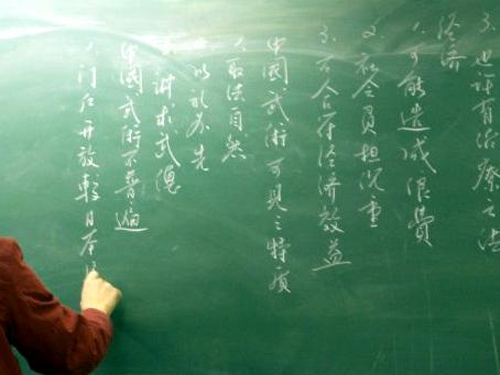 3.也許有治療方法
經济
1.可能造成浪費
2.社会負担沉重
3.不合符经济效益
中國武術可見之特质
1.取法自然
以礼为先
讲求武德
中國武術不普遍
1.门户开放較日本